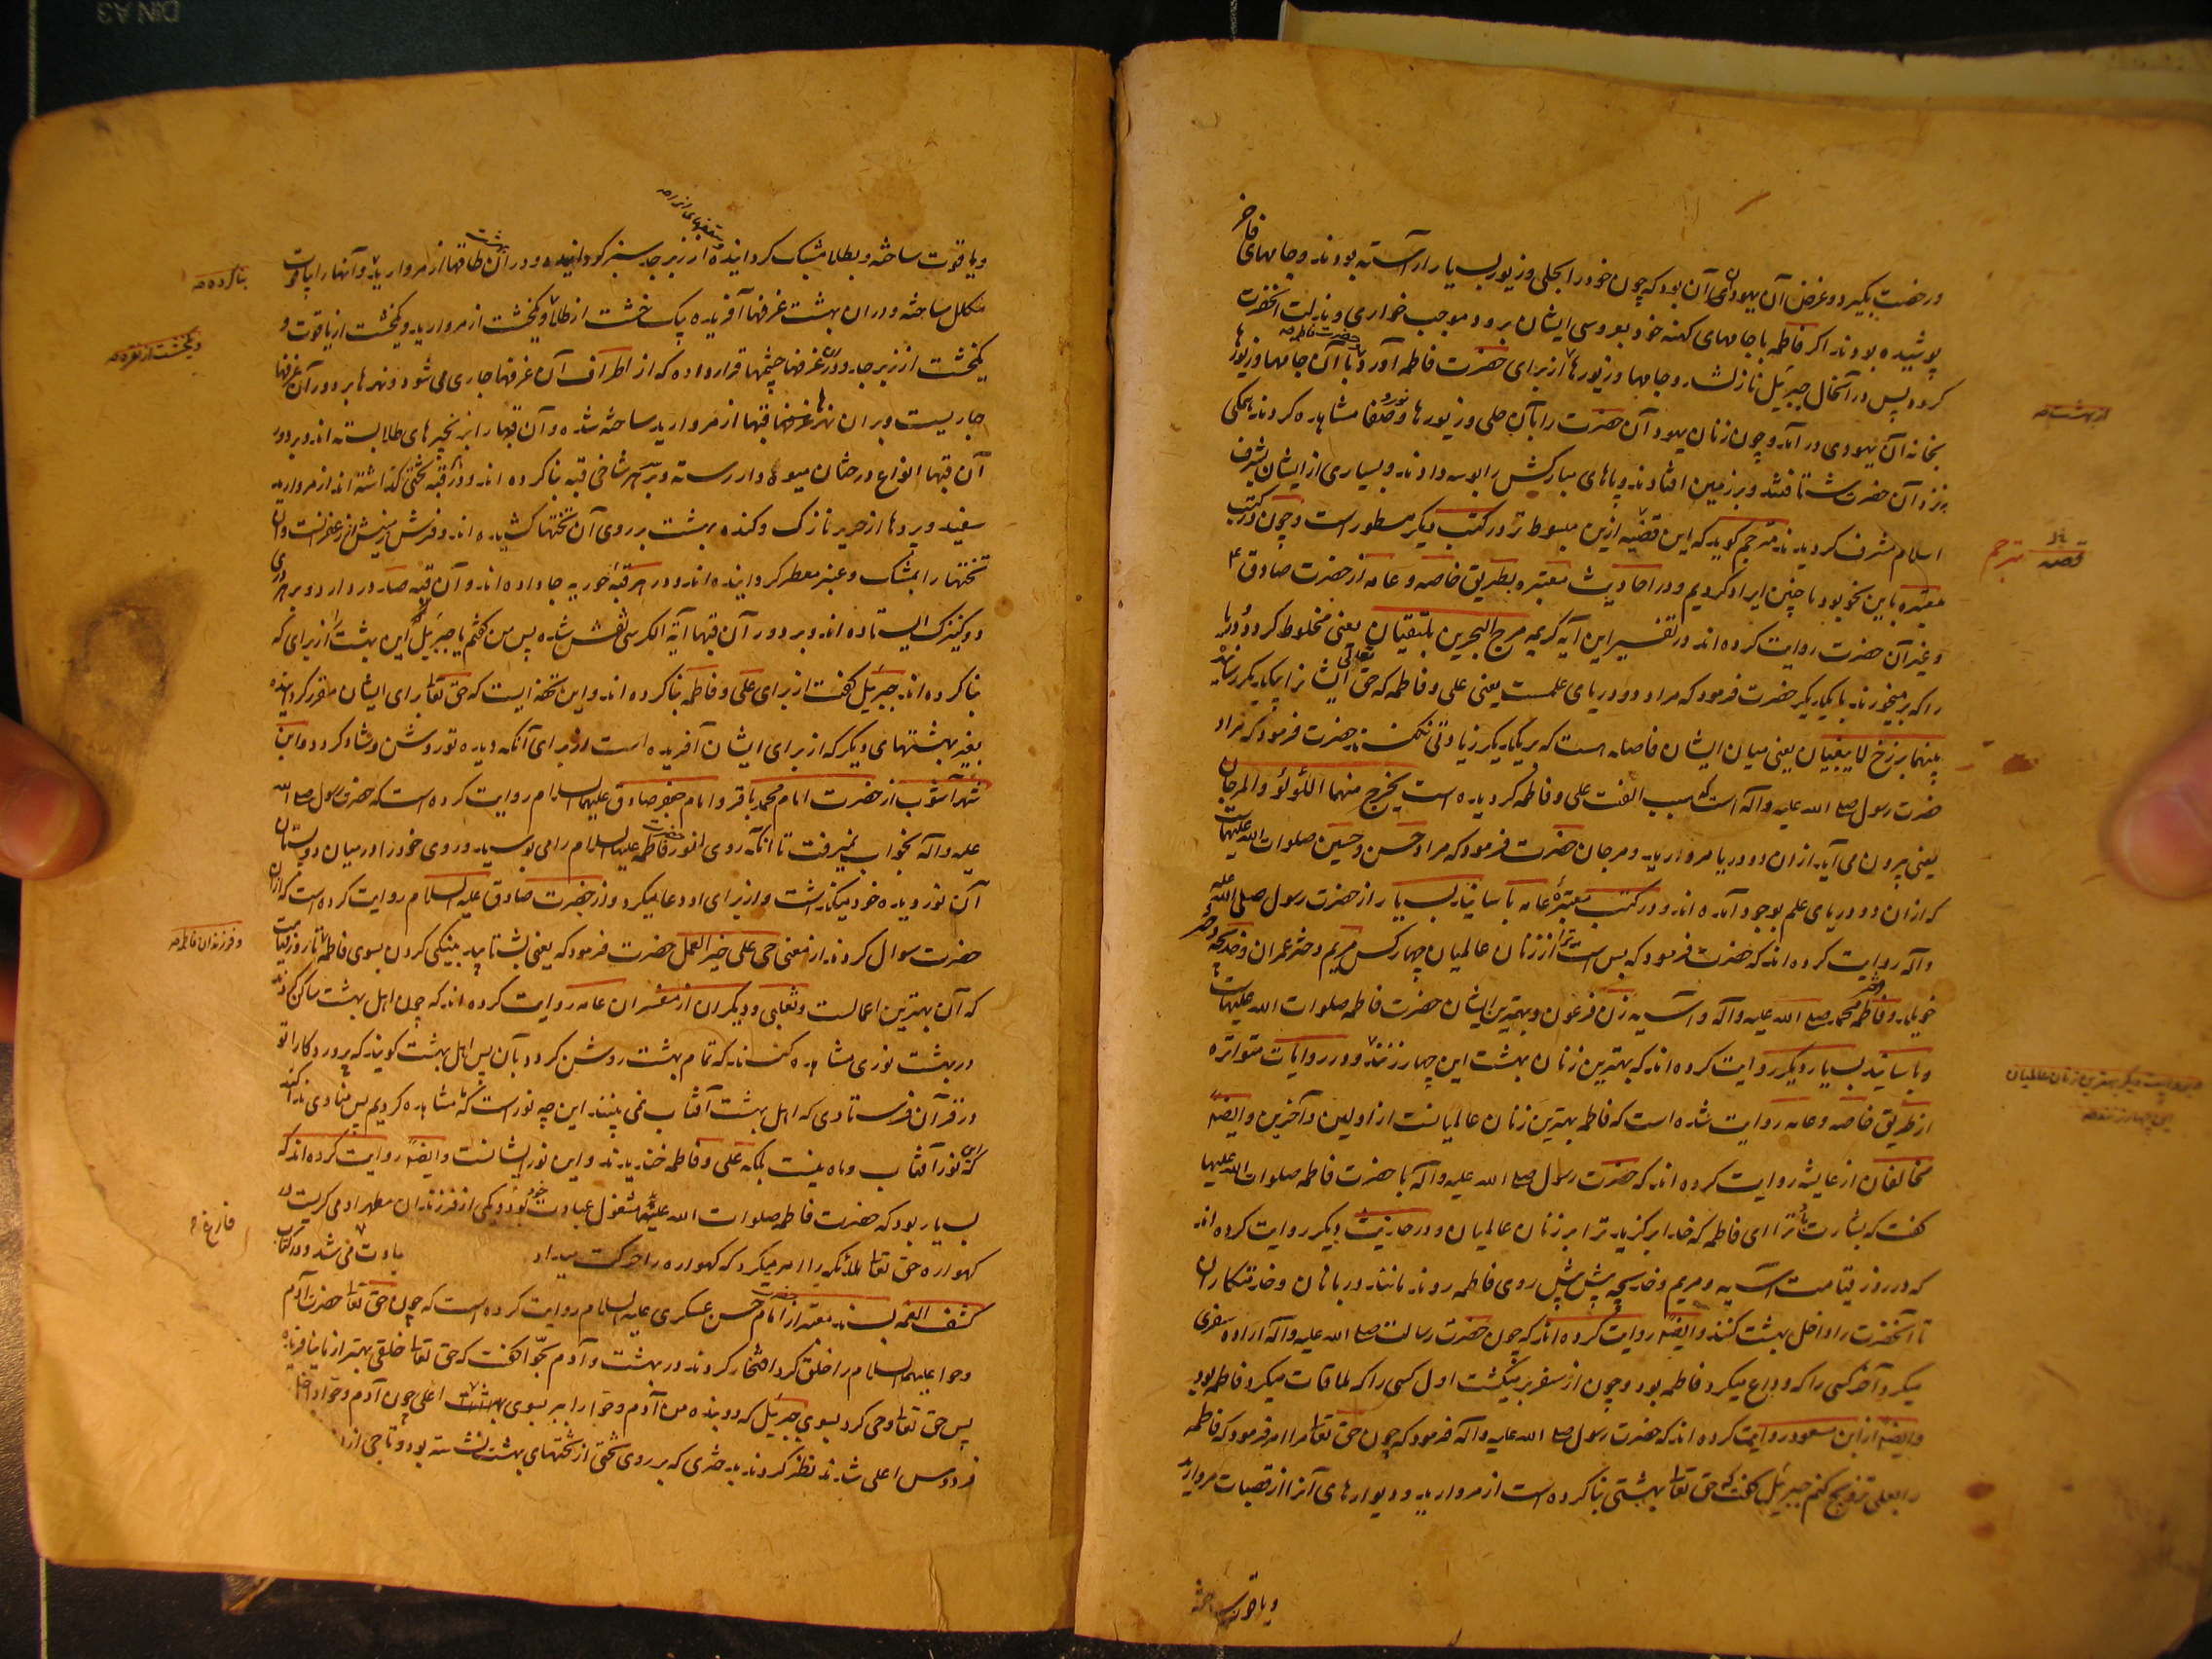 و رخصت بگیرد و غرض آن یهودی آن بود که چون خود را بحلی و زیور بسیار آراسته بودند و جامهای فاخر
پوشیده بودند اگر فاطمه با جامهای کهنه خود بعروسی ایشان برود موجب خواری و مذلت آنحضرت
گردد پس در آنحال جبرئیل نازل شد و جامها و زیورها از برای حضرت فاطمه آورد با آن جامها و زیورها
از بهشت
بخانه آن یهودی در آمد و چون زنان یهود آن حضرت را با آن حلی و زیورها و نور و صفا مشاهده کردند همگی
نزد آن حضرت شتافتند و بر زمین افتادند و پاهای مبارکش را بوسه دادند و بسیاری از ایشان بشرف
اسلام مشرف گردیدند مترجم گوید که این قضیه ازین مبسوط تر در کتب دیگر مسطور است و چون در کتب
قصه مترجم
معتبره باین نحو بود ما چنین ایراد کردیم و در احادیث معتبره بطریق خاصه و عامه از حضرت صادق ع
و غیر آن حضرت روایت کرده اند در تفسیر این آیه کریمه مرج البحرین یلتقیان یعنی مخلوط کرد دو دریا
را که بر میخورند با یکدیگر حضرت فرمود که مراد دو دریای علمست یعنی علی و فاطمه که حق تعالی ایشانرا بیکدیگر رسانید
بینهما برزخ لا یبغیان یعنی میان ایشان فاصله هست که بر یکدیگر زیادتی نکنند حضرت فرمود که مراد
حضرت رسول صلی الله علیه و آله است که سبب الفت علی و فاطمه گردیده است یخرج منهما اللؤلؤ والمرجان
یعنی بیرون می آید ازان دو دریا مروارید و مرجان حضرت فرمود که مراد حسن و حسین صلوات الله علیهما است
که ازان دو دریای علم بوجود آمده اند و در کتب معتبره عامه باسانید بسیار از حضرت رسول صلی الله علیه
و آله روایت کرده اند که حضرت فرمود که بس است ترا از زنان عالمیان چهار کس مریم دختر عمران و خدیجه دختر
خویلد و فاطمه دختر محمد صلی الله علیه و آله و آسیه زن فرعون و بهترین ایشان حضرت فاطمه صلوات الله علیها است
و باسانید بسیار دیگر روایت کرده اند که بهترین زنان بهشت این چهار زنند و در روایات متواتره
بروایت دیگر بهترین زنان عالمیان
این چهار زنند
از طریق خاصه و عامه روایت شده است که فاطمه بهترین زنان عالمیانست از اولین و آخرین و ایضا
مخالفان از عایشه روایت کرده اند که حضرت رسول صلی الله علیه و آله با حضرت فاطمه صلوات الله علیها
گفت که بشارت باد ترا ای فاطمه که خدا برگزید ترا بر زنان عالمیان و در حدیث دیگر روایت کرده اند
که در روز قیامت آسیه و مریم و خدیجه پیش پیش روی فاطمه روند مانند دربانان و خدمتکاران
تا آنحضرت را داخل بهشت کنند و ایضا روایت کرده اند که چون حضرت رسالت صلی الله علیه و آله اراده سفری
میکرد آخر کسی را که وداع میکرد فاطمه بود و چون از سفر برمیگشت اول کسی را که ملاقات میکرد فاطمه بود
و ایضا از ابن مسعود روایت کرده اند که حضرت رسول صلی الله علیه و آله فرمود که چون حق تعالی مرا امر فرمود که فاطمه
را بعلی تزویج کنم جبرئیل گفت که حق تعالی بهشتی بنا کرده است از مروارید و دیوارهای آنرا از قصبات مروارید
و یاقوت ساخته
و یاقوت ساخته و بطلا مشبک گردانیده و سقفهای آنرا از زبرجد سبز گردانیده و در آن بهشت طاقها از مروارید و آنها را بیاقوت
بنا کرده
مکلل ساخته و در ان بهشت غرفها آفریده یک خشت از طلا و یکخشت از مروارید و یکخشت از یاقوت و
و یکخشت از نقره
یکخشت از زبرجد و در ان غرفها چشمها قرار داده که از اطراف آن غرفها جاری می شود و نهرها بر دور آن غرفها
جاریست و بر ان نهرها قبها از مروارید ساخته شده و آن قبها را بزنجیرهای طلا بسته اند و بر دور
آن قبها انواع درختان میوه دار رسته و بر هر شاخی قبه بنا کرده اند و در قبه تختی گذاشته اند از مروارید
سفید و پردها از حریر نازک و گنده بهشت بر روی آن تختها کشیده اند و فرش زمینش از زعفرانست و آن
تختها را بمشک و عنبر معطر گردانیده اند و در هر قبه حوریه جا داده اند و آن قبه صد در دارد و بر هر دری
دو کنیزک ایستاده اند و بر دور آن قبها آیة الکرسی نقش شده پس من گفتم یا جبرئیل این بهشت را از برای که
بنا کرده اند جبرئیل گفت از برای علی و فاطمه بنا کرده اند و این تحفه ایست که حق تعالی برای ایشان مقرر گردانیده
بغیر بهشتهای دیگر که از برای ایشان آفریده است از برای آنکه دیده تو روشن و شاد گردد و ابن
شهر آشوب از حضرت امام محمد باقر و امام جعفر صادق علیهما السلام روایت کرده است که حضرت رسول صلی الله
علیه و آله بخواب نمیرفت تا آنکه روی انور حضرت فاطمه علیها السلام را می بوسید و روی خود را در میان دو پستان
آن نور دیده خود میگذاشت و از برای او دعا میکرد و از حضرت صادق علیه السلام روایت کرده است که ازان
حضرت سوال کردند از معنی حی علی خیر العمل حضرت فرمود که یعنی بشتابید بنیکی کردن بسوی فاطمه تا روز قیامت
و فرزندان فاطمه
که آن بهترین اعمالست و ثعلبی و دیگران از مفسران عامه روایت کرده اند که چون اهل بهشت ساکن گردند
در بهشت نوری مشاهده کنند که تمام بهشت روشن گردد بآن پس اهل بهشت گویند که پروردگارا تو
در قرآن فرستادی که اهل بهشت آفتاب نمی بینند این چه نور است که مشاهده کردیم پس منادی ندا کند
که این نور آفتاب و ماه نیست بلکه علی و فاطمه خندیدند و این نور ایشانست و ایضا روایت کرده اند که
بسیار بود که حضرت فاطمه صلوات الله علیها مشغول عبادت خود بود و یکی از فرزندان مطهر او می گریست در
گهواره حق تعالی ملائکه را امر میکرد که گهواره را حرکت میداد
فارغ
کشف الغمه بسند معتبر از حضرت امام حسن عسکری علیه السلام روایت کرده است که چون حق تعالی حضرت آدم
و حوا علیهما السلام را خلق کرد افتخار کردند در بهشت و آدم بحوا گفت که حق تعالی خلقی بهتر از ما نیافریده
پس حق تعالی وحی کرد بسوی جبرئیل که دو بنده من آدم و حوا را ببر بسوی بهشت اعلی چون آدم و حوا داخل
فردوس اعلی شدند نظر کردند بدختری که بر روی تختی از تختهای بهشت نشسته بود و تاجی از